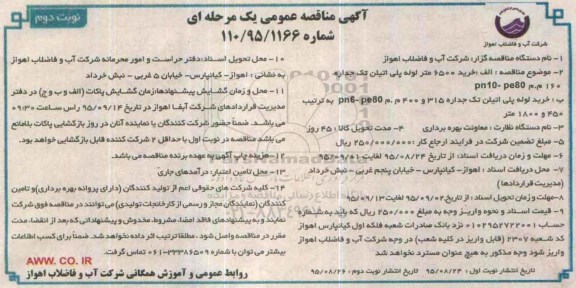 نوبت دوم
آگهی مناقصه عمومی یک مرحله ای
شماره ۱۱۰/۹۵/۱۱۶۶
شرکت آب و فاضلاب اهواز
۱- نام دستگاه مناقصه گزار: شرکت آب و فاضلاب اهواز
۲- موضوع مناقصه: الف: خرید ۶۵۰۰ متر لوله پلی اتیلن تک جداره
۱۶۰ م.م pn10- pe80
ب: خرید لوله پلی اتیلن تک جداره ۳۱۵ و ۴۰۰ م.م pn6- pe80 به ترتیب
۴۵۰ و ۱۸۰۰ متر
۳- نام دستگاه نظارت: معاونت بهره برداری ۴- مدت تحویل کالا: ۴۵ روز
۵- مبلغ تضمین شرکت در فرایند ارجاع کار: ۲۵۰/۰۰۰/۰۰۰ ریال
۶- مهلت و زمان دریافت اسناد: از تاریخ ۹۵/۰۸/۲۴ لغایت ۹۵/۰۹/۰۱
۷- محل دریافت اسناد: اهواز- کیانپارس- خیابان پنجم غربی - نبش خرداد
(مدیریت قراردادها)
۸- مهلت و زمان تحویل اسناد: از تاریخ ۹۵/۰۹/۰۲ لغایت ۹۵/۰۹/۱۳
۹- قیمت اسناد و نحوه واریز وجه به مبلغ ۲۵۰/۰۰۰ ریال که باید به شماره
حساب ۰۱۰۲۹۵۲۷۲۲۰۰۱ نزد بانک صادرات شعبه فلکه اول کیانپارس اهواز
کد شعبه ۲۳۰۷ (قابل واریز در کلیه شعب) در وجه شرکت آب و فاضلاب اهواز
واریز شود وجه مذکور به هیچ عنوان مسترد نخواهد شد
تاریخ انتشار نوبت اول: ۹۵/۰۸/۲۴ تاریخ انتشار نوبت دوم: ۹۵/۰۸/۲۶
۱۰- محل تحویل اسناد: دفتر حراست و امور محرمانه شرکت آب و فاضلاب اهواز
به نشانی: اهواز- کیانپارس- خیابان ۵ غربی - نبش خرداد
۱۱- محل و زمان گشایش پیشنهادها: زمان گشایش پاکات (الف و ب و ج) در دفتر
مدیریت قراردادهای شرکت آبفا اهواز در تاریخ ۹۵/۰۹/۱۴ راس ساعت ۰۹:۳۰
می باشد. ضمنا حضور شرکت کنندگان یا نماینده آنان در روز بازگشایی پاکات بلامانع
می باشد مناقصه در نوبت اول با حداقل ۲ شرکت کننده قابل بازگشایی خواهد بود.
۱۲- هزینه چاپ آگهی به عهده برنده مناقصه می باشد.
۱۳- محل تامین اعتبار: درآمدهای جاری
۱۴- کلیه شرکت های حقوقی اعم از تولید کنندگان (دارای پروانه بهره برداری) و تامین
کنندگان (نمایندگان مجاز و رسمی از کارخانجات تولیدی) می توانند در مناقصه فوق شرکت
نمایند و به پیشنهادهای فاقد امضا، مشروط، مخدوش و پیشنهاداتی که بعد از انقضا، مدت
مقرر در مناقصه واصل شود، مطلقا ترتیب اثر داده نخواهد شد. ضمنا برای کسب اطلاعات
بیشتر می توان با شماره ۳۳۳۸۶۵۰۹-۰۶۱ تماس گرفت.
AWW. CO. IR
روابط عمومی و آموزش همگانی شرکت آب و فاضلاب اهواز